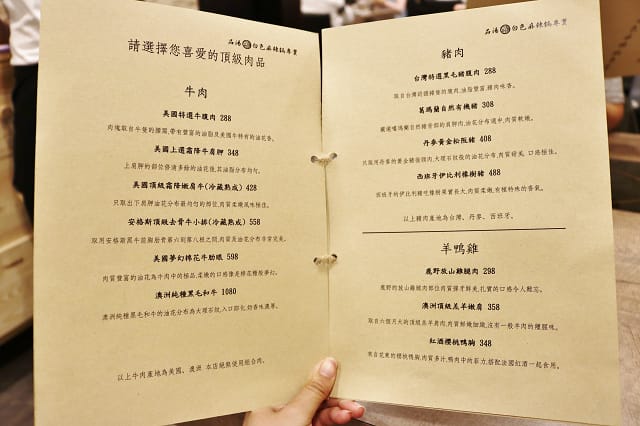 品湯 白色麻辣鍋專賣
請選擇您喜愛的頂級肉品
牛肉
美國特選牛腹肉 288
肉塊取自牛隻的腰窩,帶有豐富的油脂及美國牛特有的油花香。
美國上選霜降牛肩胛 348
上肩胛的部位修清多餘的油花後,其油脂分布均勻。
美國頂級霜降嫩肩牛(冷藏熟成) 428
只取出下肩胛油花分布最均勻的部位,肉質柔嫩風味極佳。
安格斯頂級去骨牛小排(冷藏熟成) 558
取用安格斯黑牛前胸肋骨第六到第八根之間,肉質及油花分布非常完美。
美國夢幻棉花牛肋眼 598
肉質豐富的油花為牛肉中的極品,柔嫩的口感像是棉花糖般夢幻。
澳洲純種黑毛和牛 1080
澳洲純種黑毛和牛的油花分布為大理石紋,入口即化,奶香味濃厚。
以上牛肉產地為美國、澳洲 本店絕無使用組合肉。
品湯 白色麻辣鍋專賣
豬肉
台灣特選黑毛豬腹肉 288
取自台灣的頂級豬隻的腹肉,油脂豐富,豬肉味香。
葛瑪蘭自然有機豬 308
嚴選噶瑪蘭自然豬背部的肩胛肉,油花分布適中,肉質軟嫩。
丹麥黃金松阪豬 408
只服用丹麥的黃金豬後頸肉,大理石紋般的油花分布,肉質甜美,口感極佳。
西班牙伊比利橡樹豬 488
西班牙的伊比利豬吃橡樹果實長大,肉質柔嫩,有種特殊的香氣。
以上豬肉產地為台灣、丹麥、西班牙。
羊鴨雞
鹿野放山雞腿肉 298
鹿野的放山雞雞腿肉部位肉質彈牙鮮美,扎實的口感令人難忘。
澳洲頂級羔羊嫩肩 358
取自六個月大的頂級羔羊肩肉,肉質鮮嫩細緻,沒有一般羊肉的羶腥味。
紅酒櫻桃鴨胸 348
來自花東的櫻桃鴨胸,肉質多汁,鴨肉中的菲力,搭配法國紅酒一起食用。